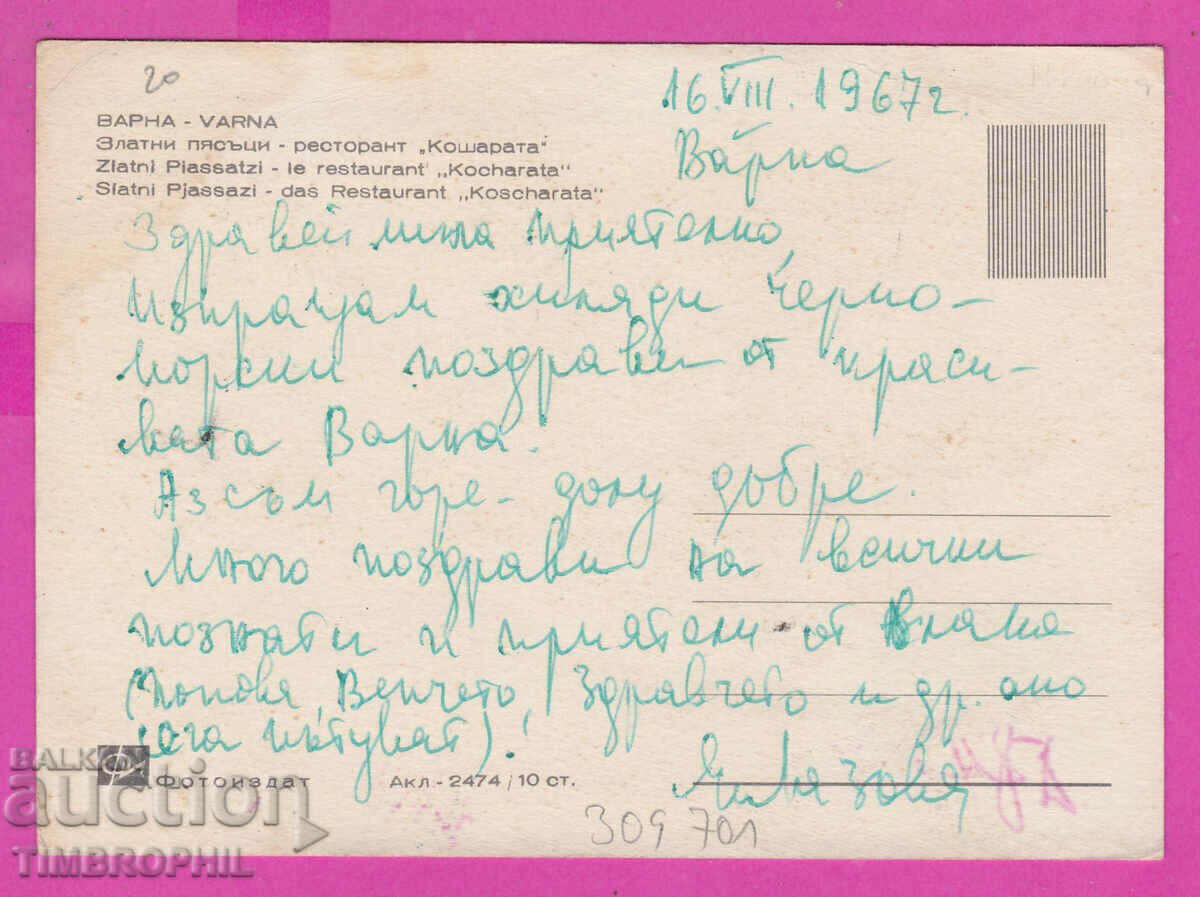 20
16.VIII.1967г.
Варна
ВАРНА - VARNA
Златни пясъци - ресторант „Кошарата“
Zlatni Piassatzi - le restaurant „Kocharata“
Slatni Pjassazi - das Restaurant „Koscharata“
Здравей мила приятелко,
Изпращам хиляди Черно-
морски поздрави от краси-
вата Варна.
Аз съм горе-долу добре.
Много поздрави на всички
познати и приятели от влака
(Попова, Венчето, Здравчето и др. ако
сега пътуват).
Фотоиздат
Акл-2474/10 ст.
309701
BALKAN
auction
TIMBROPHIL